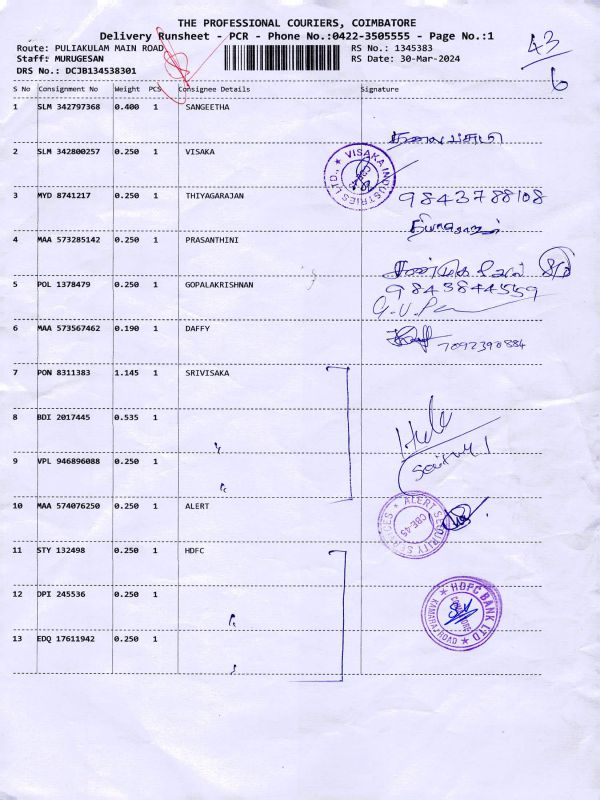 THE PROFESSIONAL COURIERS, COIMBATORE
Delivery Runsheet - PCR - Phone No.:0422-3505555 - Page No.:1
Route: PULIAKULAM MAIN ROAD
RS No.: 1345383
Staff: MURUGESAN
RS Date: 30-Mar-2024
DRS No.: DCJB134538301
43
6
S No Consignment No Weight PCS Consignee Details Signature
1 SLM 342797368 0.400 1 SANGEETHA
2 SLM 342800257 0.250 1 VISAKA
VISAKA INDUSTRIES LTD.
3 MYD 8741217 0.250 1 THIYAGARAJAN
9843788108
4 MAA 573285142 0.250 1 PRASANTHINI
5 POL 1378479 0.250 1 GOPALAKRISHNAN
9843844559
6 MAA 573567462 0.190 1 DAFFY
7092390884
7 PON 8311383 1.145 1 SRIVISAKA
8 BDI 2017445 0.535 1
9 VPL 946896088 0.250 1
10 MAA 574076250 0.250 1 ALERT
ALERT SECURITY SERVICES
CBE-45
11 STY 132498 0.250 1 HDFC
12 DPI 245536 0.250 1
HDFC BANK LTD
13 EDQ 17611942 0.250 1